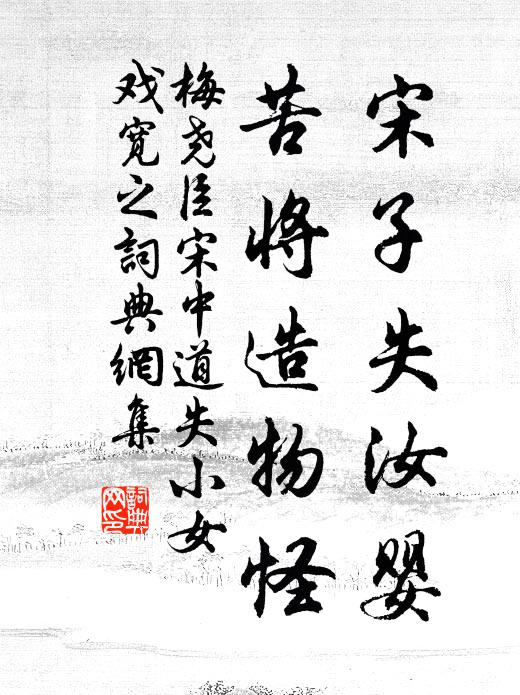 宋子失汝婴
苦将造物怪
梅尧臣宋中道失小女
戏宽之詞典網集
詞典網印